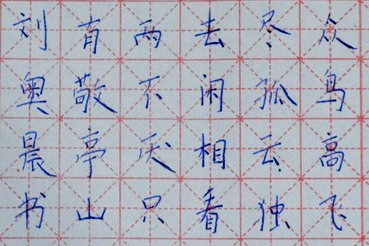 众鸟高飞
尽孤云独
去闲相看
两不厌只
有敬亭山
刘奥晨书